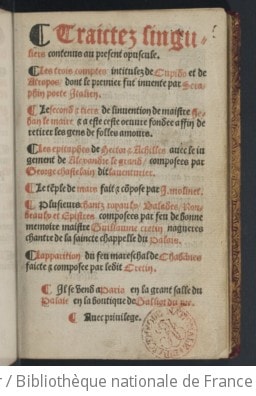 ¶ Traictez singu-
liers contenus au present opuscule.
¶ Les trois comptes intitulez de Cupido et de
Atropos / dont le premier fut invente par Sera-
phin poete Italien.
¶ Le second & tiers de linuention de maistre Je-
han le maire & a este ceste oeuure fondee affin de
retirer les gens de folles amours.
¶ Les epitaphes de Hector & Achilles auec le iu
gement de Alexandre le grand / composees par
George chastelain dit lauenturier.
¶ Le tēple de mars fait & cōpose par J. molinet.
¶ Plusieurs chantz royaulx / Balades / Ron-
deaulx et Epistres composees par feu de bonne
memoire maistre Guillaume cretin nagueres
chantre de la saincte chappelle du Palais.
¶ Lapparition du feu mareschal de Chabānes
faicte & composee par ledit Cretin.
¶ Jl se vend a Paris en la grant salle du
Palais en la boutique de Galliot du pre.
¶ Auec priuilege.
r / Bibliothèque nationale de France